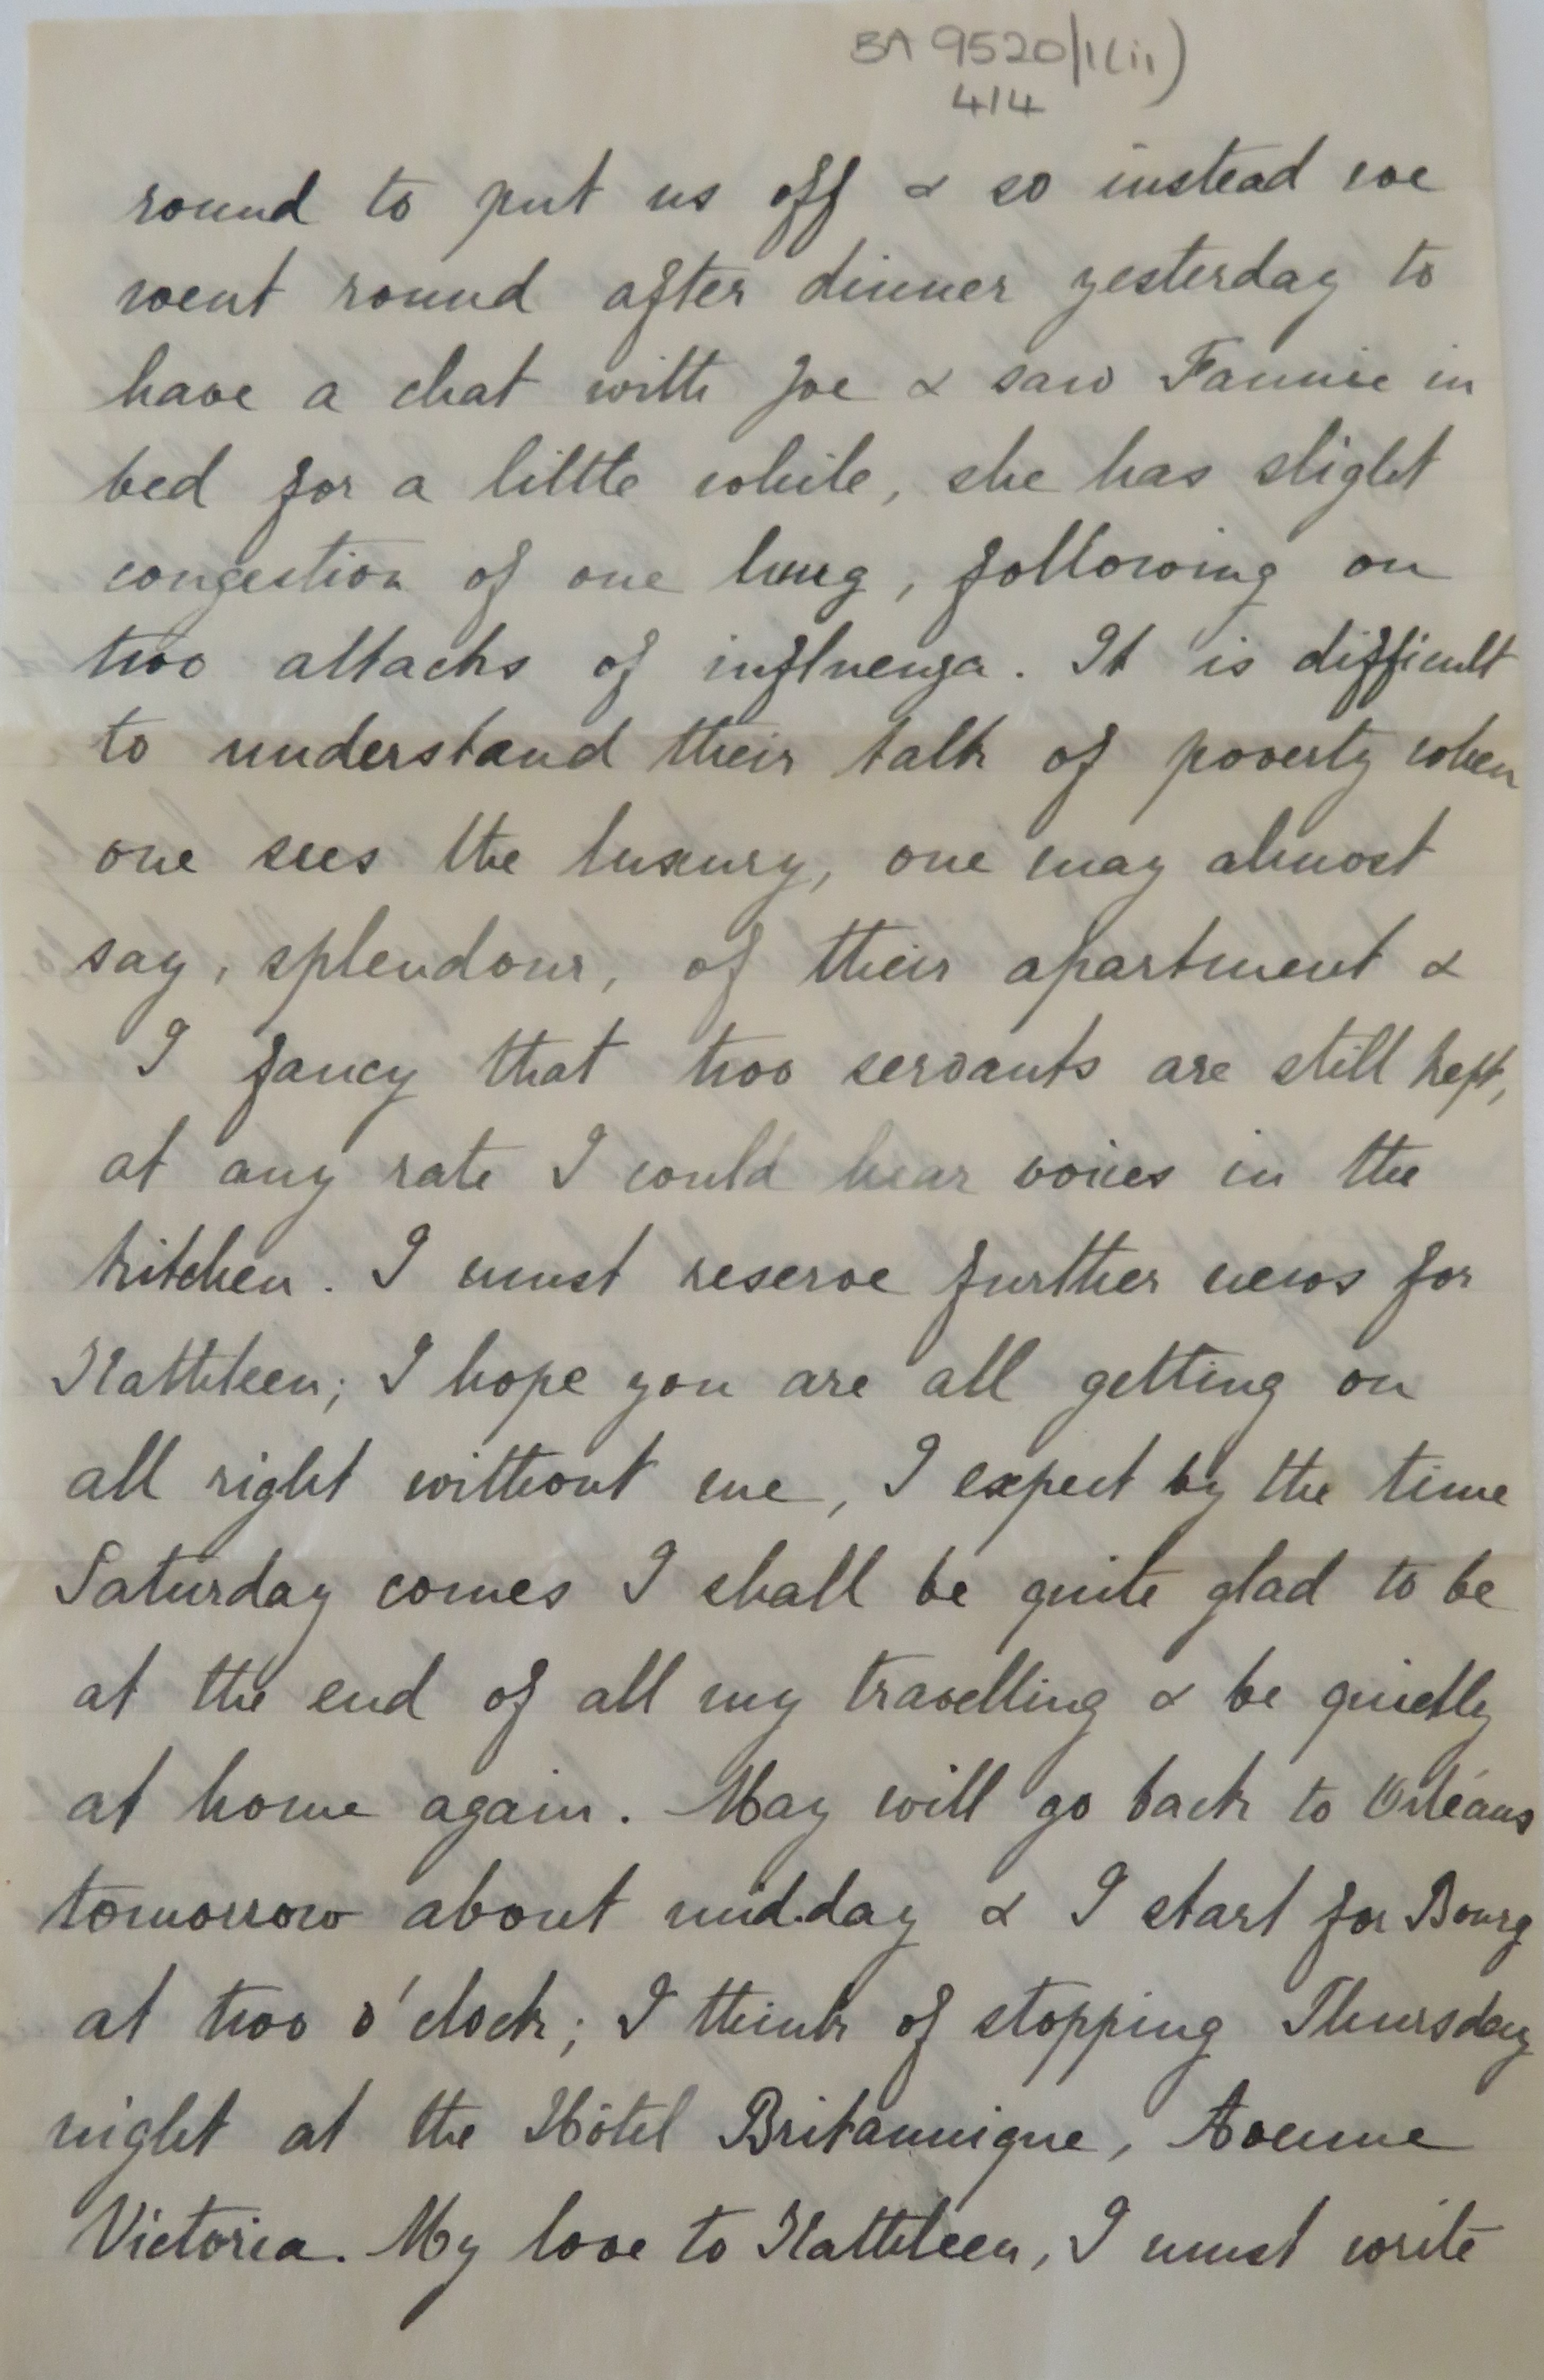 BA 9520/1(ii)
414
round to put us off & so instead we
went round after dinner yesterday to
have a chat with Joe & saw Fannie in
bed for a little while, she has slight
congestion of one lung, following on
two attacks of influenza. It is difficult
to understand their talk of poverty when
one sees the luxury, one may almost
say, splendour, of their apartment &
I fancy that two servants are still kept,
at any rate I could hear voices in the
kitchen. I must reserve further news for
Kathleen; I hope you are all getting on
all right without me, I expect by the time
Saturday comes I shall be quite glad to be
at the end of all my travelling & be quietly
at home again. May will go back to Orléans
tomorrow about mid.day & I start for Bourg
at two o'clock; I think of stopping Thursday
night at the Hôtel Britannique, Avenue
Victoria. My love to Kathleen, I must write